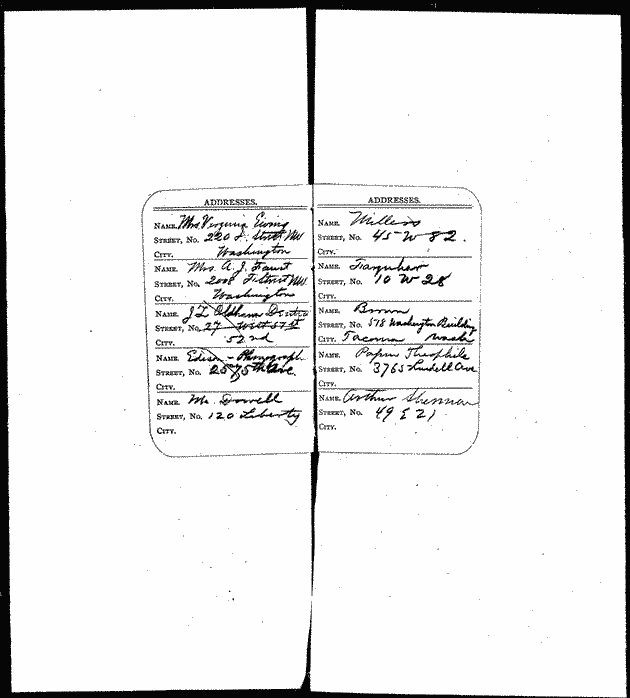 ADDRESSES.
NAME. Mrs. Virginia Ewing
STREET, NO. 220 Street NW
CITY. Washington
NAME. Mrs. A. J. Faust
STREET, NO. 2008 F Street NW.
CITY. Washington
NAME. J Z Oldham
STREET, NO. 27 West 57 St
CITY. 52nd
NAME. Edison - Phonograph
STREET, NO. 25 5th Ave.
CITY.
NAME. Mr. Dowell
STREET, NO. 120 Liberty
CITY.
ADDRESSES.
NAME. Millens
STREET, NO. 45 W 82.
CITY.
NAME. Farquhar
STREET, NO. 10 W 28
CITY.
NAME. Brown
STREET, NO. 578 Washington Building
CITY. Tacoma Wash
NAME. Papin Theophile
STREET, NO. 3765 Lindell Ave
CITY.
NAME. Arthur Sherman
STREET, NO. 49 E 21
CITY.